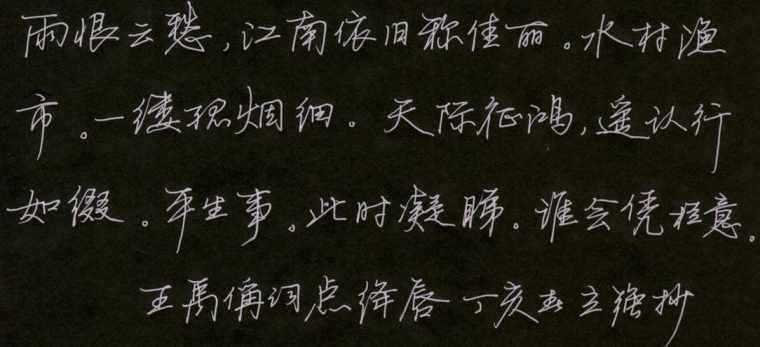 雨恨云愁，江南依旧称佳丽。水村渔
市。一缕孤烟细。天际征鸿，遥认行
如缀。平生事。此时凝睇。谁会凭栏意。
王禹偁词点绛唇 丁亥春立强抄